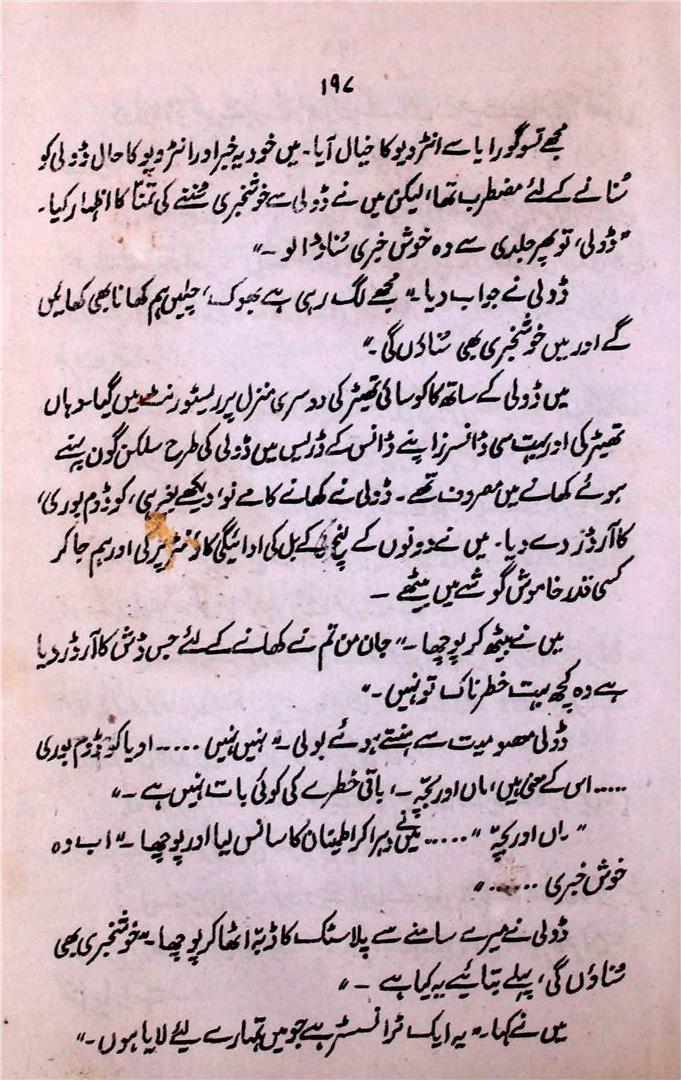 ۱۹۷
مجھے تسوگورایا سے انٹرویو کا خیال آیا۔ میں خود یہ خبر اور انٹرویو کا حال ڈولی کو
سُنانے کے لئے مضطرب تھا، لیکن میں نے ڈولی سے خوشخبری سُننے کی تمنّا کا اظہار کیا۔
”ڈولی، تو پھر جلدی سے وہ خوش خبری سُنا ڈالو ۔“
ڈولی نے جواب دیا۔ ”مجھے لگ رہی ہے بھوک، چلیں ہم کھانا بھی کھائیں
گے اور میں خوشخبری بھی سُناؤں گی۔“
میں ڈولی کے ساتھ کاکوسائی تھیٹر کی دوسری منزل پر ریسٹورنٹ میں گیا۔ وہاں
تھیٹر کی اور بہت سی ڈانسرز اپنے ڈانس کے ڈریس میں ڈولی کی طرح سلکن گون پہنے
ہوئے کھانے میں مصروف تھے۔ ڈولی نے کھانے کا مے نو، دیکھے بغیر ہی، کو ڈوم بوری،
کا آرڈر دے دیا۔ میں نے دونوں کے لنچ کے بل کی ادائیگی کاؤنٹر پر کی اور ہم جا کر
کسی قدر خاموش گوشے میں بیٹھے ۔
میں نے بیٹھ کر پوچھا ۔ ”جان من تم نے کھانے کے لئے جس ڈش کا آرڈر دیا
ہے وہ کچھ بہت خطرناک تو نہیں ۔“
ڈولی معصومیت سے ہنستے ہوئے بولی ۔ ”نہیں نہیں ..... اویا کو ڈوم بوری
..... اس کے معنی ہیں، ماں اور بچّہ ۔، باقی خطرے کی کوئی بات نہیں ہے ۔“
”ماں اور بچّہ“ ..... میں نے دہرا کر اطمینان کا سانس لیا اور پوچھا ۔ ”اب وہ
خوش خبری ......“
ڈولی نے میرے سامنے سے پلاسٹک کا ڈبّہ اٹھا کر پوچھا۔ ”خوشخبری بھی
سُناؤں گی، پہلے بتائیے یہ کیا ہے ۔“
میں نے کہا۔ ”یہ ایک ٹرانسسٹر ہے جو میں تمہارے لیئے لایا ہوں ۔“